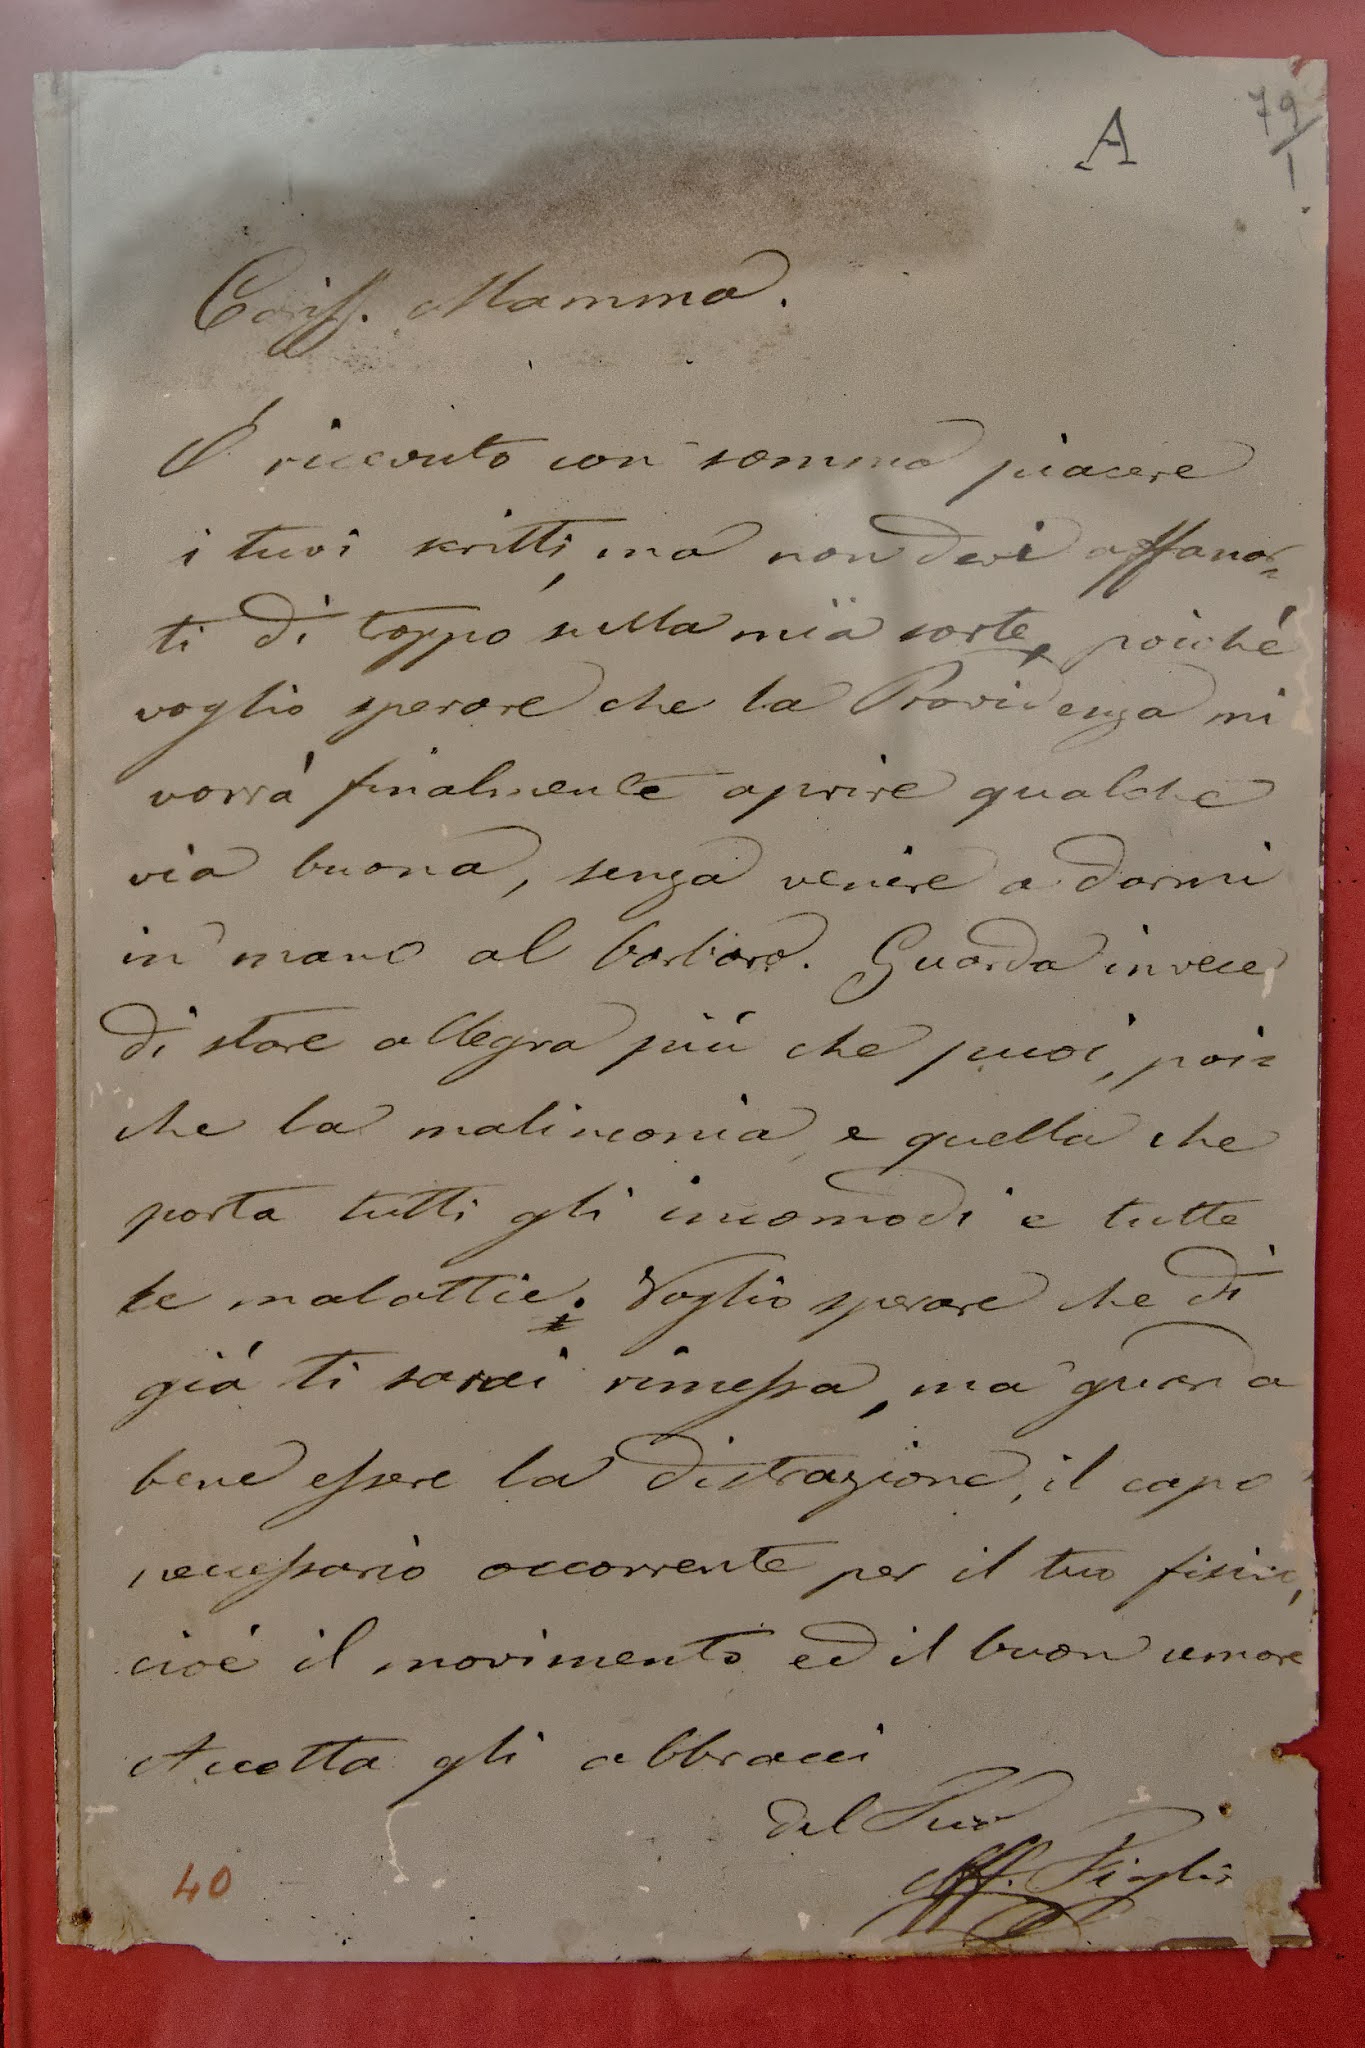 A
79/1
Cariss. Mamma.
Ó ricevuto con sommo piacere
i tuoi scritti, ma non devi affanar=
ti di troppo sulla mia sorte, poiché
voglio sperare che la Providenza mi
vorrá finalmente aprire qualche
via buona, senza venire a darmi
in mano al barbaro. Guarda invece
di stare allegra piú che puoi, poi=
che la malinconia, e quella che
porta tutti gli incomodi e tutte
le malattie. Voglio sperare che di
giá ti sarai rimessa, ma guarda
bene essere la distrazione, il capo
necessario occorrente per il tuo fisico,
cioé il movimento ed il buon umore
Accetta gli abbracci
del Tuo
Aff. Figlio
40